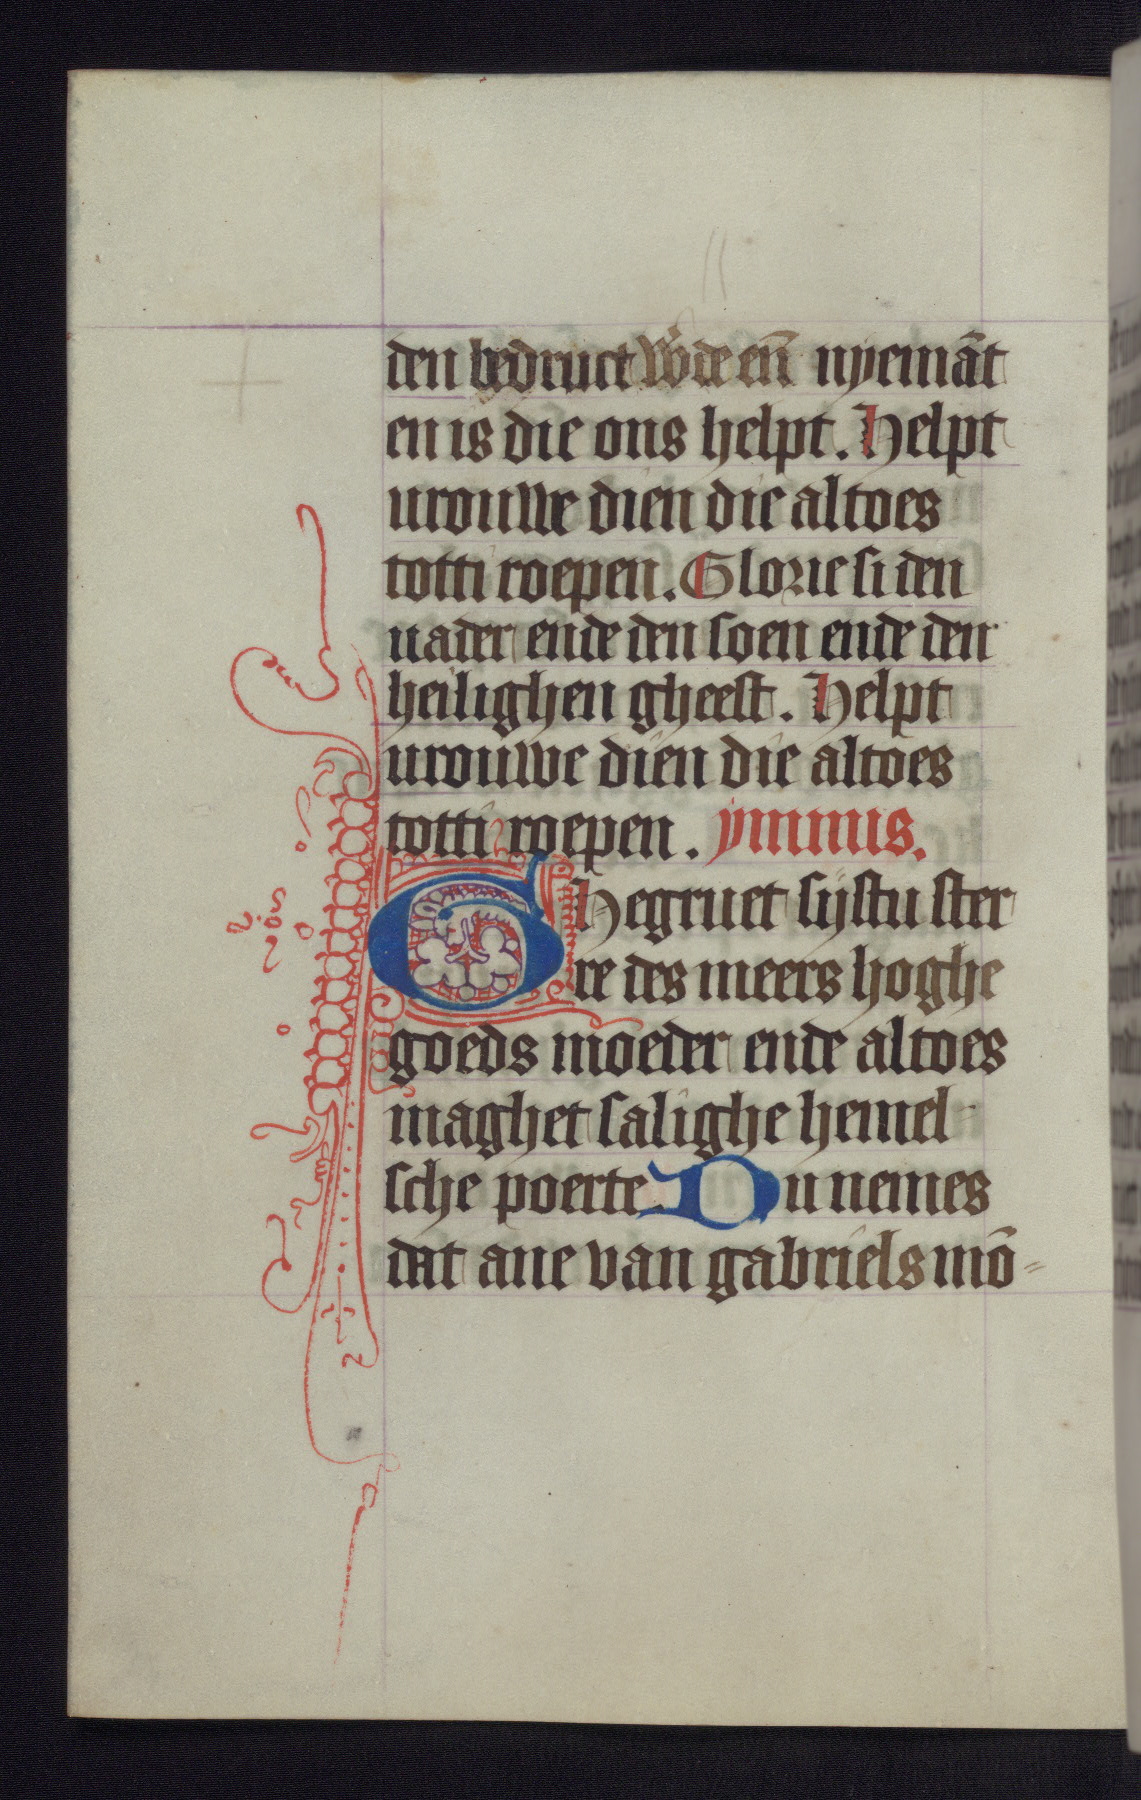 den bedruct wōde eñ nyemāt
en is die ons helpt. Helpt
urouwe dien die altoes
totti roepen. Glorie si den
uader ende den soen ende den
heilighen gheest. Helpt
urouwe dien die altoes
totti roepen. ymnus.
Ghegruet sijstu ster
re des meers hoghe
goeds moeder ende altoes
maghet salighe hemel
sche poerte. Du nemes
dat aue van gabriels mō=